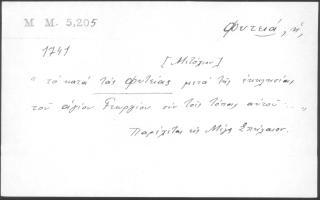 M M. 5,205
Φυτειά, ἡ,
1741
[Μετόχιον]
" τὸ κατὰ τὰς Φυτείας μετὰ τῆς ἐκκλησίας
τοῦ ἁγίου Γεωργίου σὺν τοῖς τόποις αὐτοῦ . . "
Παρέχεται εἰς Μέγα Σπήλαιον.